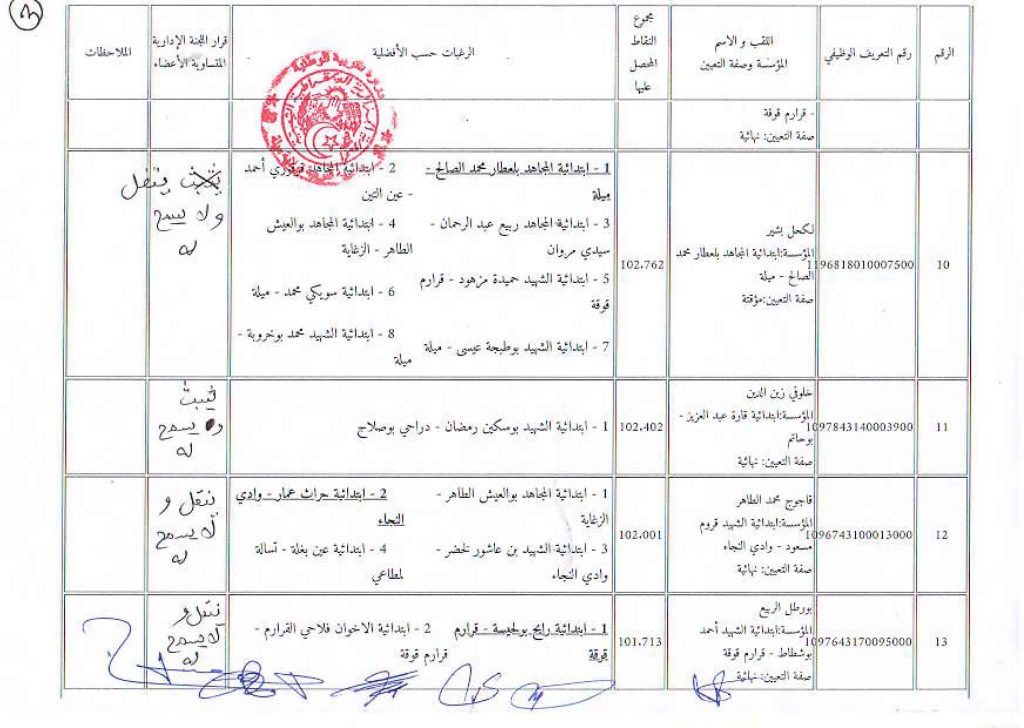 3
الرقم
رقم التعريف الوظيفي
اللقب و الاسم
المؤسسة وصفة التعيين
مجموع
النقاط
المحصل
عليها
الرغبات حسب الأفضلية
قرار اللجنة الإدارية
المتساوية الأعضاء
الملاحظات
- قرارم قوقة
صفة التعيين: نهائية
10
1196818010007500
لكحل بشير
المؤسسة:ابتدائية المجاهد بلعطار محمد
الصالح - ميلة
صفة التعيين:مؤقتة
102.762
1 - ابتدائية المجاهد بلعطار محمد الصالح -
ميلة
2 - ابتدائية المجاهد أحمد
- عين التين
3 - ابتدائية المجاهد ربيع عبد الرحمان -
سيدي مروان
4 - ابتدائية المجاهد بوالعيش
الطاهر - الزغاية
5 - ابتدائية الشهيد حميدة مزهود - قرارم
قوقة
6 - ابتدائية سويكي محمد - ميلة
7 - ابتدائية الشهيد بوطبجة عيسى - ميلة
8 - ابتدائية الشهيد محمد بوخروبة -
ميلة
ينقل
ولا يسمح
له
11
1097843140003900
خلوفي زين الدين
المؤسسة:ابتدائية قارة عبد العزيز -
بوحاتم
صفة التعيين: نهائية
102.402
1 - ابتدائية الشهيد بوسكين رمضان - دراحي بوصلاح
يثبت
و يسمح
له
12
1096743100013000
قاجوج محمد الطاهر
المؤسسة:ابتدائية الشهيد قروم
مسعود - وادي النجاء
صفة التعيين: نهائية
102.001
1 - ابتدائية المجاهد بوالعيش الطاهر -
الزغاية
2 - ابتدائية حراث عمار - وادي
النجاء
3 - ابتدائية الشهيد بن عاشور لخضر -
وادي النجاء
4 - ابتدائية عين بغلة - تسالة
لمطاعي
ينقل و
لا يسمح
له
13
1097643170095000
بورطل الربيع
المؤسسة:ابتدائية الشهيد أحمد
بوشطاط - قرارم قوقة
صفة التعيين: نهائية
101.713
1 - ابتدائية رابح بولحيسة - قرارم
قوقة
2 - ابتدائية الاخوان فلاحي القرارم -
قرارم قوقة
ينقل و
لا يسمح
له